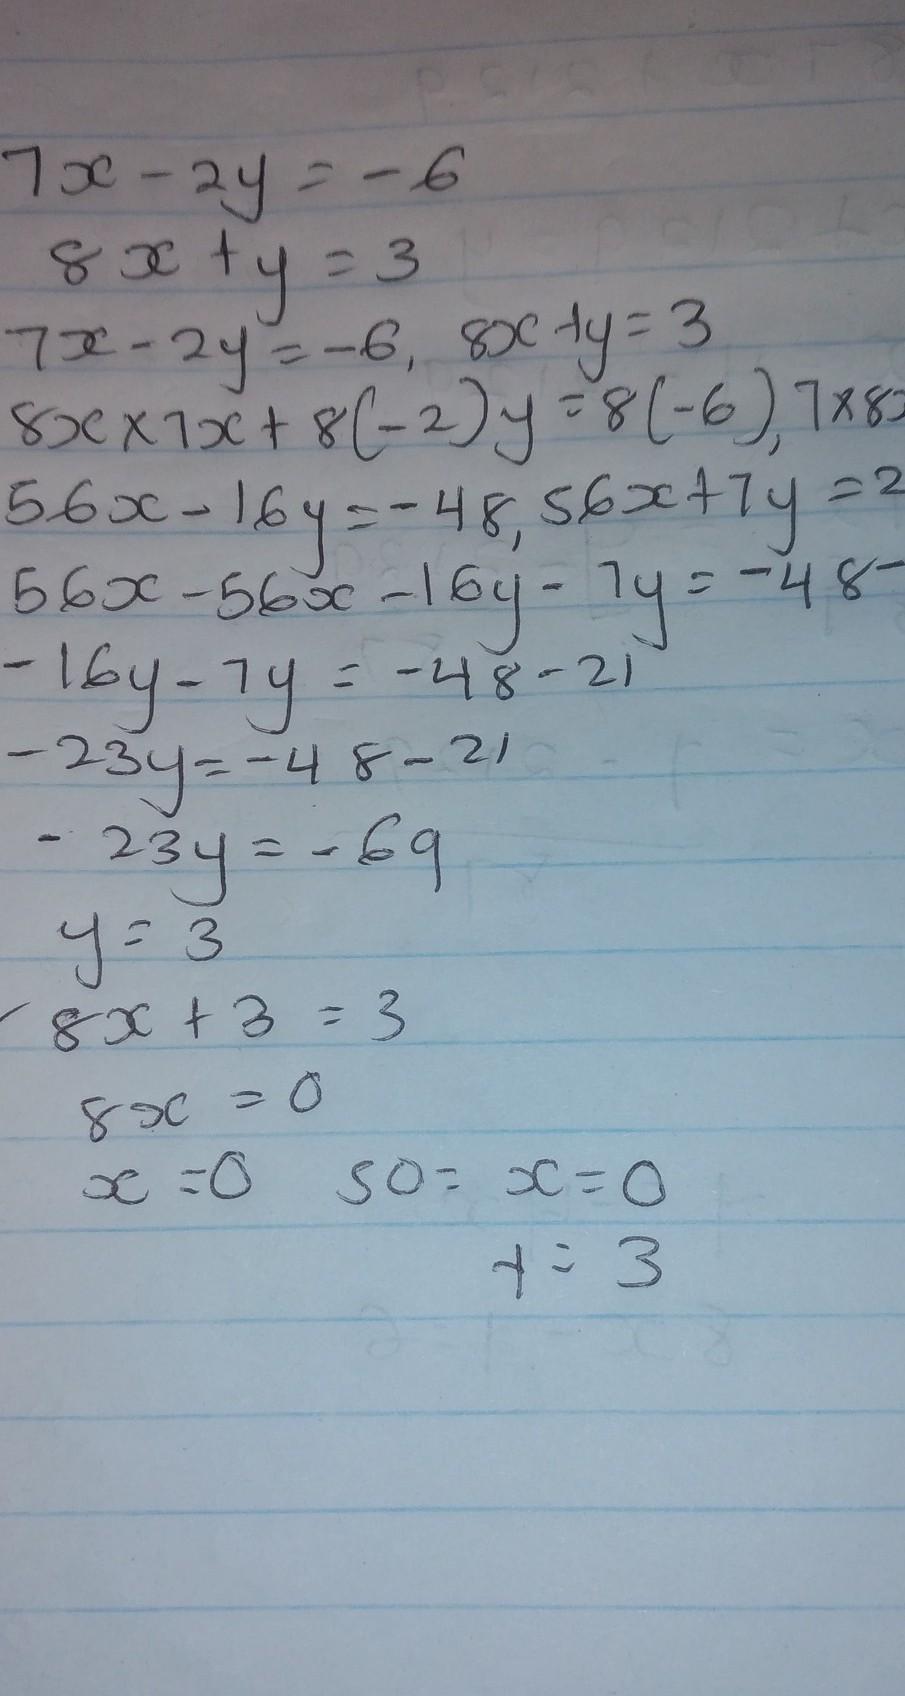 7x - 2y = -6
8x + y = 3
7x - 2y = -6, 8x + y = 3
8x × 7x + 8(-2)y = 8(-6), 7×8x
56x - 16y = -48, 56x + 7y = 2
56x - 56x - 16y - 7y = -48 -
-16y - 7y = -48 - 21
-23y = -48 - 21
- 23y = -69
y = 3
8x + 3 = 3
8x = 0
x = 0 so = x = 0
y = 3